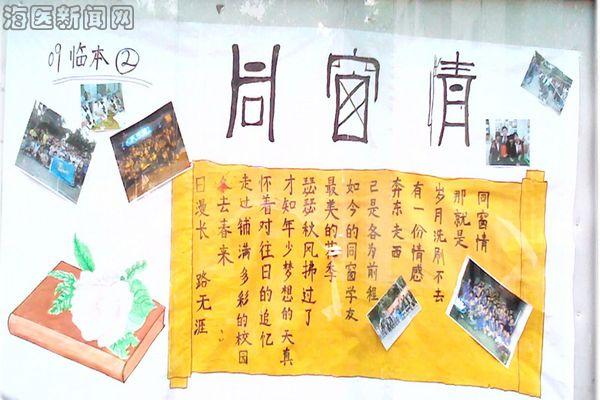 海医新闻网
09临本②
同窗情
同窗情
那就是
岁月洗刷不去
有一份情感
奔东走西
已是各为前程
如今的同窗学友
最美的花季
瑟瑟秋风拂过了
才知年少梦想的天真
怀着对往日的追忆
走过铺满多彩的校园
去春来
日漫长 路无涯